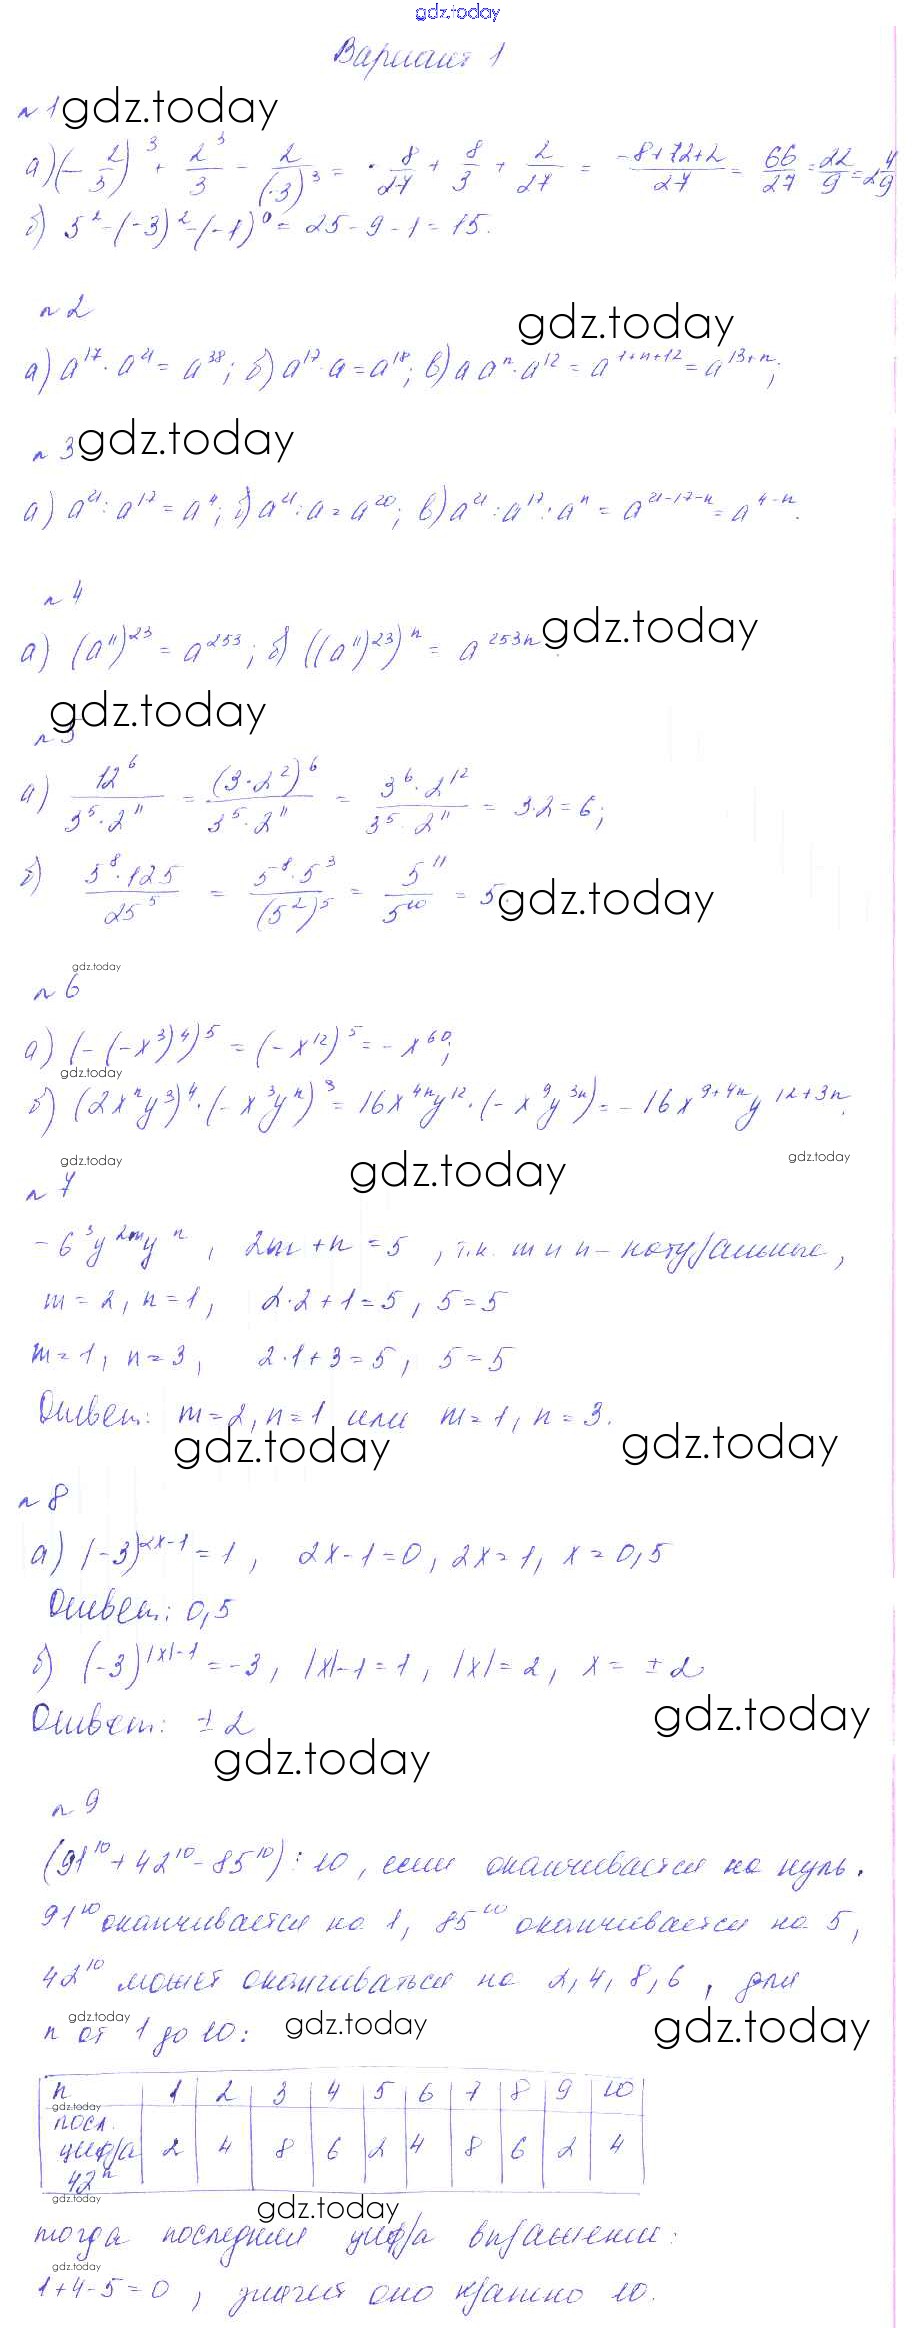 gdz.today
Вариант 1
n 1 gdz.today
а) (-2/3)^3 + 2^3/3 - 2/(-3)^3 = -8/27 + 8/3 + 2/27 = (-8+72+2)/27 = 66/27 = 22/9 = 2 4/9
б) 5^2 - (-3)^2 - (-1)^0 = 25 - 9 - 1 = 15.
n 2
gdz.today
а) a^17 · a^21 = a^38; б) a^17 · a = a^18; в) a a^n · a^12 = a^(1+n+12) = a^(13+n);
n 3 gdz.today
а) a^21 : a^17 = a^4; б) a^21 : a = a^20; в) a^21 : a^17 : a^n = a^(21-17-n) = a^(4-n).
n 4
а) (a^11)^23 = a^253; б) ((a^11)^23)^n = a^(253n) gdz.today
gdz.today
n 5
а) 12^6/(3^5 · 2^11) = (3 · 2^2)^6/(3^5 · 2^11) = (3^6 · 2^12)/(3^5 · 2^11) = 3·2 = 6;
б) (5^8 · 125)/25^5 = (5^8 · 5^3)/(5^2)^5 = 5^11/5^10 = 5. gdz.today
gdz.today
n 6
а) (-(-x^3)^4)^5 = (-x^12)^5 = -x^60;
gdz.today
б) (2x^n y^3)^4 · (-x^3 y^n)^3 = 16x^(4n) y^12 · (-x^9 y^(3n)) = -16x^(9+4n) y^(12+3n).
gdz.today gdz.today gdz.today
n 7
-6^3 y^(2m) y^n, 2m+n=5, т.к. m и n - натуральные,
m=2, n=1, 2·2+1=5, 5=5
m=1, n=3, 2·1+3=5, 5=5
Ответ: m=2, n=1 или m=1, n=3.
gdz.today gdz.today
n 8
а) (-3)^(2x-1) = 1, 2x-1=0, 2x=1, x=0,5
Ответ: 0,5
б) (-3)^(|x|-1) = -3, |x|-1=1, |x|=2, x=±2
Ответ: ±2 gdz.today
gdz.today
n 9
(91^10 + 42^10 - 85^10) ⋮ 10, если оканчивается на нуль.
91^10 оканчивается на 1, 85^10 оканчивается на 5,
42^10 может оканчиваться на 2, 4, 8, 6, для
gdz.today gdz.today gdz.today
n от 1 до 10:
n 1 2 3 4 5 6 7 8 9 10
gdz.today
посл.
цифра 2 4 8 6 2 4 8 6 2 4
42^n
gdz.today
gdz.today
тогда последняя цифра выражения:
gdz.today
1+4-5=0, значит оно кратно 10.